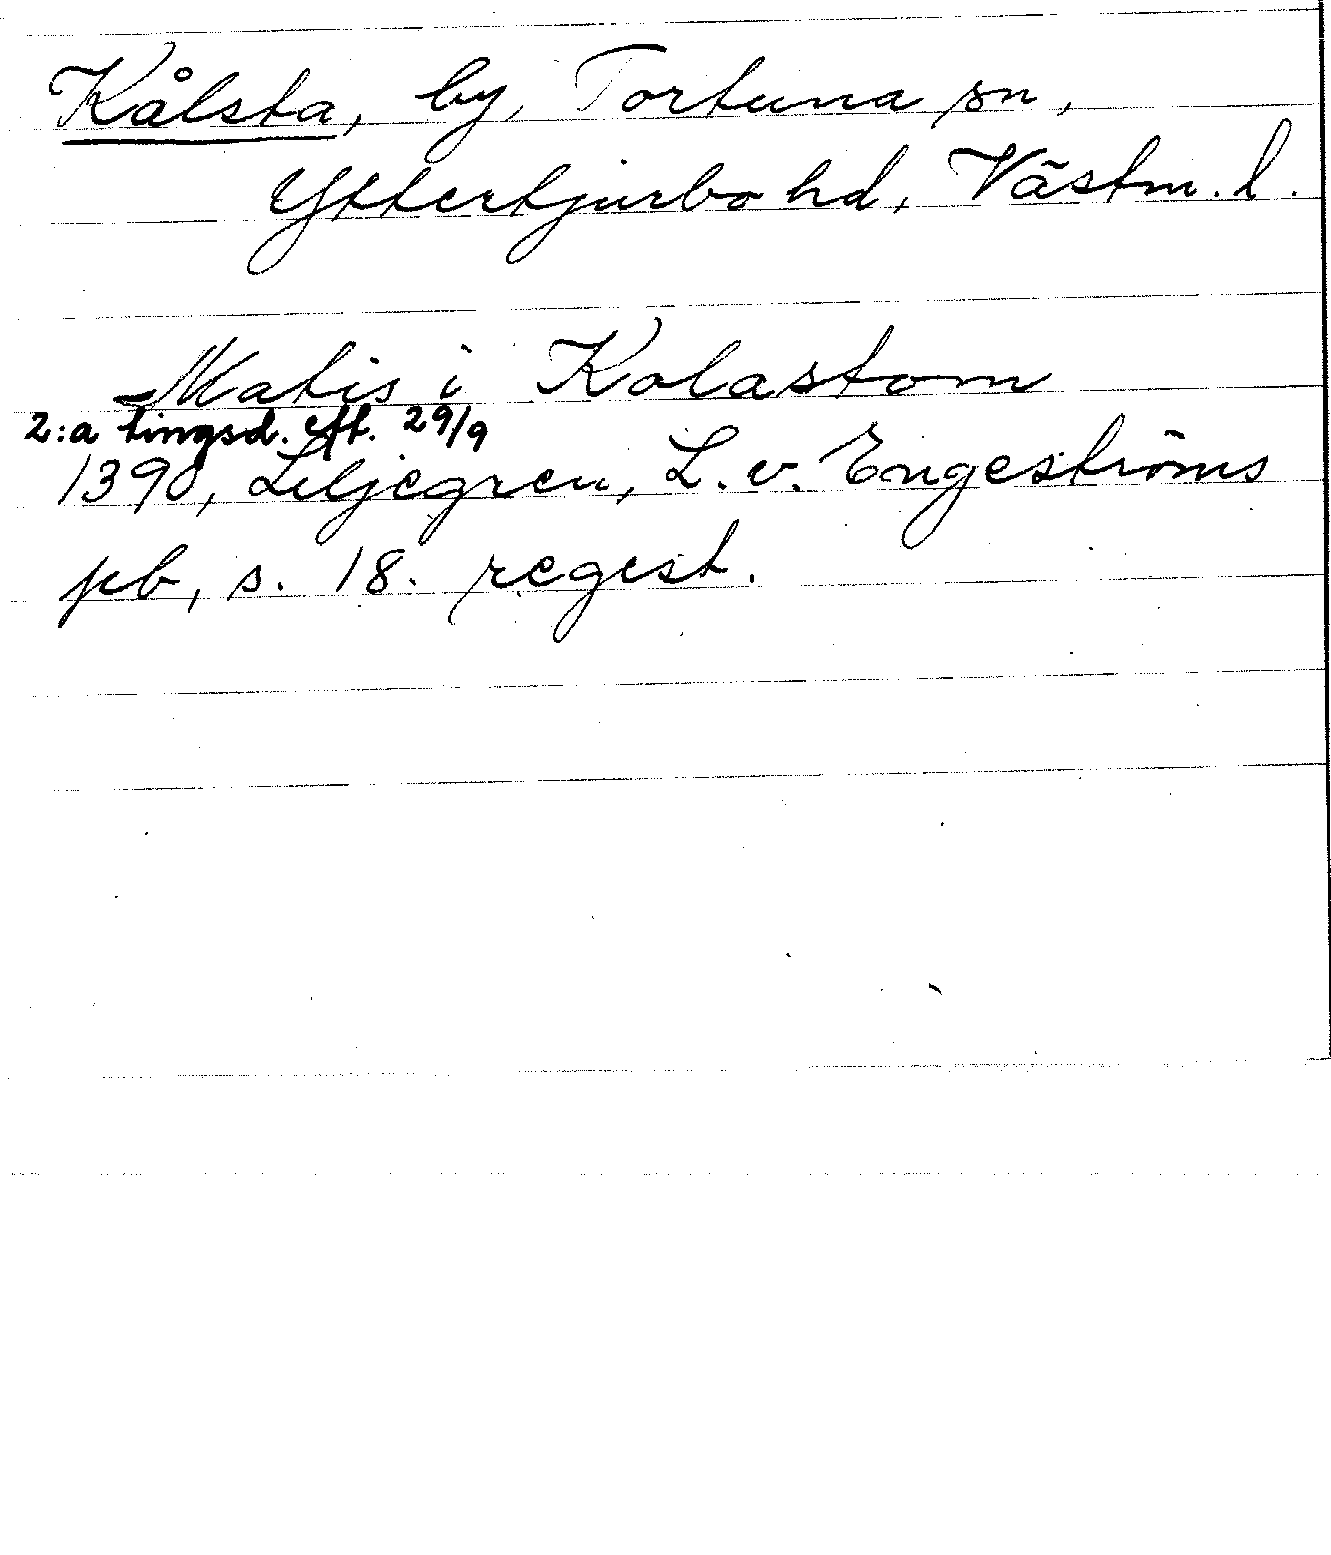 Kålsta, by, Tortuna sn,
Yttertjurbo hd, Västm. l.
Matis i Kolastom
2:a tingsd. eft. 29/9
1390, Liljegren, L. v. Engeströms
pb, s. 18. regest.